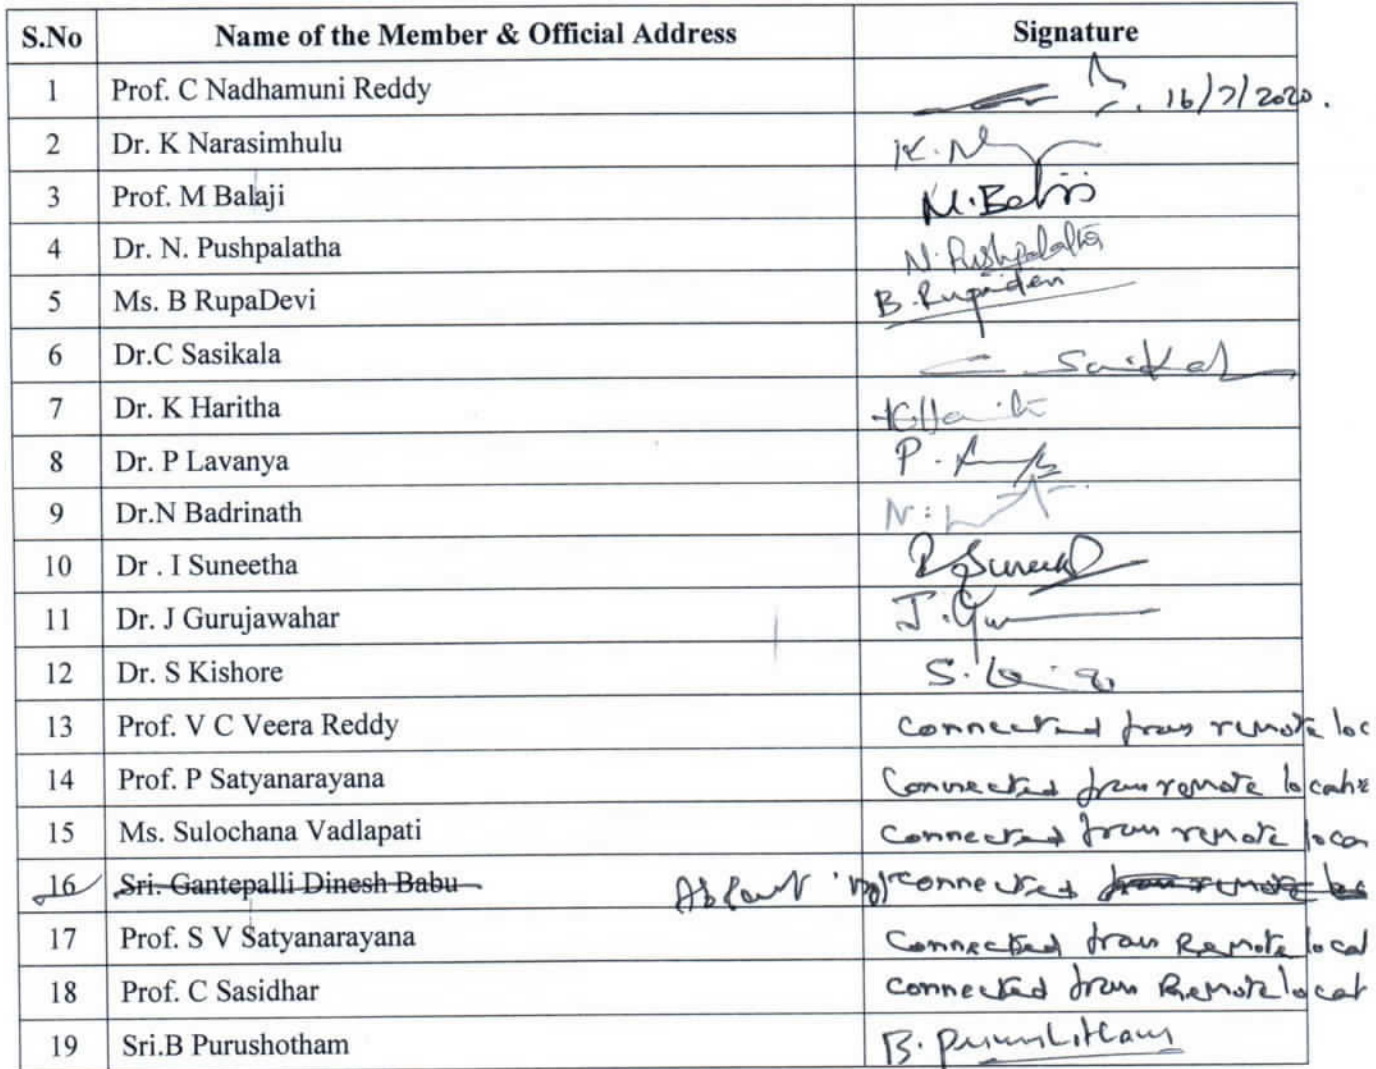 S.No Name of the Member & Official Address Signature
1 Prof. C Nadhamuni Reddy 16/7/2020.
2 Dr. K Narasimhulu K.
3 Prof. M Balaji M. Balaji
4 Dr. N. Pushpalatha N. Pushpalatha
5 Ms. B RupaDevi B. Rupadevi
6 Dr.C Sasikala C. Sasikala
7 Dr. K Haritha K Haritha
8 Dr. P Lavanya P.
9 Dr.N Badrinath N.
10 Dr . I Suneetha Suneetha
11 Dr. J Gurujawahar J. Gu
12 Dr. S Kishore S.
13 Prof. V C Veera Reddy Connected from remote loc
14 Prof. P Satyanarayana Connected from remote locatio
15 Ms. Sulochana Vadlapati Connected from remote locat
16 Sri. Gantepalli Dinesh Babu Absent not connected from remote loc
17 Prof. S V Satyanarayana Connected from Remote locat
18 Prof. C Sasidhar Connected from Remote locat
19 Sri.B Purushotham B. Purushotham